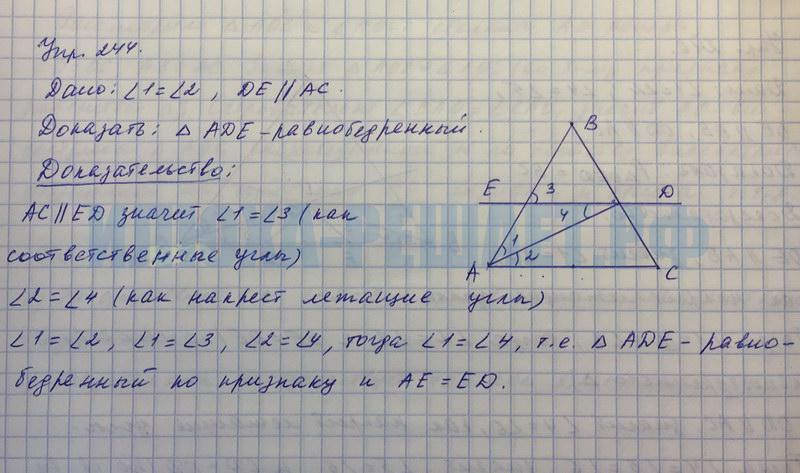 Упр. 244.
Дано: ∠1=∠2, DE||AC.
Доказать: △ ADE - равнобедренный.
Доказательство:
AC||ED значит ∠1=∠3 (как
соответственные углы)
∠2=∠4 (как накрест лежащие углы)
∠1=∠2, ∠1=∠3, ∠2=∠4, тогда ∠1=∠4, т.е. △ ADE - равно-
бедренный по признаку и AE=ED.
B
E 3 D
4
1
A 2 C